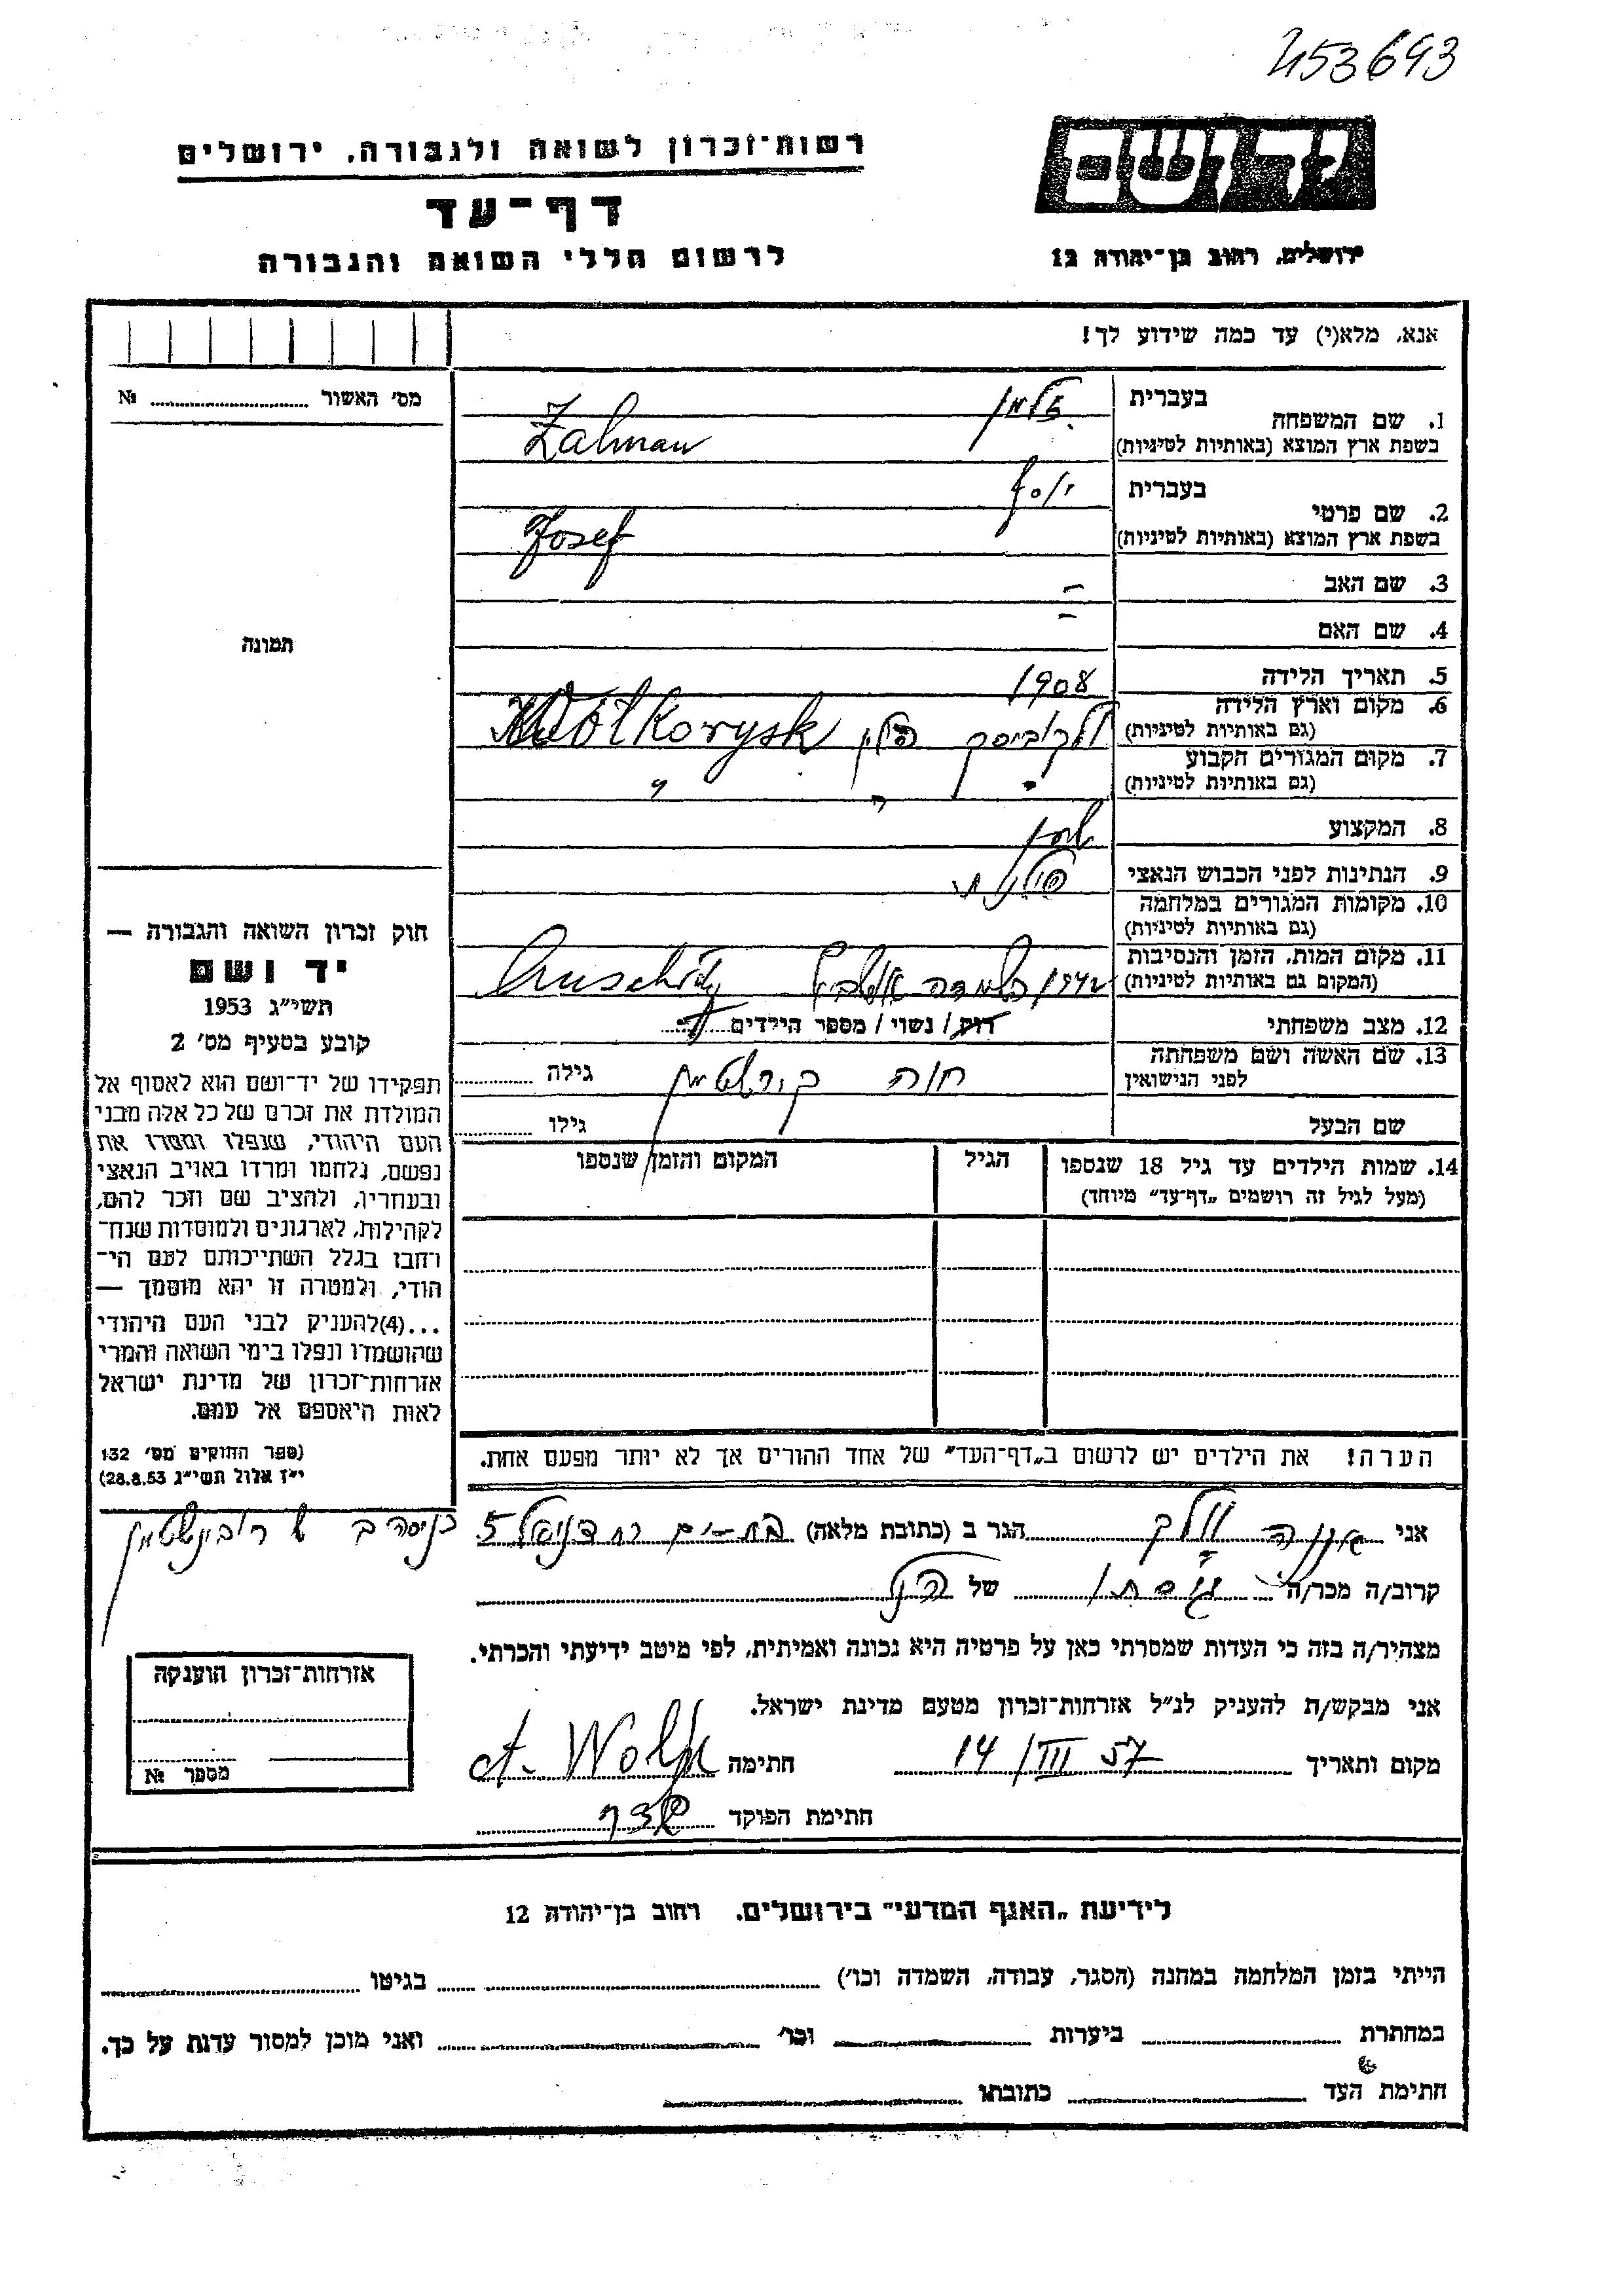 453693
רשות־זכרון לשואה ולגבורה, ירושלים
יד ושם
דף־עד
לרשום חללי השואה והגבורה
ירושלים, רחוב בן־יהודה 12
אנא, מלא(י) עד כמה שידוע לך!
מס' האשור № 
1. שם המשפחה
בעברית זלמן
בשפת ארץ המוצא (באותיות לטיניות) Zalman
2. שם פרטי
בעברית יוסף
בשפת ארץ המוצא (באותיות לטיניות) Josef
3. שם האב –
4. שם האם –
תמונה
5. תאריך הלידה 1908
6. מקום וארץ הלידה
(גם באותיות לטיניות) וולקוביסק פולין Wolkowysk
7. מקום המגורים הקבוע
(גם באותיות לטיניות) " " "
8. המקצוע
9. הנתינות לפני הכבוש הנאצי פולנית
10. מקומות המגורים במלחמה
(גם באותיות לטיניות)
11. מקום המות, הזמן והנסיבות
(המקום גם באותיות לטיניות) בהשמדה אושביץ
12. מצב משפחתי רוק / נשוי / מספר הילדים
13. שם האשה ושם משפחתה
לפני הנישואין חוה גילה
שם הבעל גילו
14. שמות הילדים עד גיל 18 שנספו
(מעל לגיל זה רושמים „דף־עד" מיוחד)
הגיל
המקום והזמן שנספו
חוק זכרון השואה והגבורה —
יד ושם
תשי"ג 1953
קובע בסעיף מס' 2
תפקידו של יד־ושם הוא לאסוף אל
המולדת את זכרם של כל אלה מבני
העם היהודי, שנפלו ומסרו את
נפשם, נלחמו ומרדו באויב הנאצי
ובעוזריו, ולהציב שם וזכר להם,
לקהילות, לארגונים ולמוסדות שנח־
רחבו בגלל השתייכותם לעם הי־
הודי, ולמטרה זו יהא מוסמך —
...(4)להעניק לבני העם היהודי
שהושמדו ונפלו בימי השואה והמרי
אזרחות־זכרון של מדינת ישראל
לאות היאספם אל עמם.
(ספר החוקים מס' 132
י"ז אלול תשי"ג 28.8.53)
הערה! את הילדים יש לרשום ב„דף־העד" של אחד ההורים אך לא יותר מפעם אחת.
אני אנה וולק הגר ב (כתובת מלאה) בת-ים רח דניאל 5
כניסה ב
קרוב/ה מכר/ה של
מצהיר/ה בזה כי העדות שמסרתי כאן על פרטיה היא נכונה ואמיתית, לפי מיטב ידיעתי והכרתי.
אני מבקש/ת להעניק לנ"ל אזרחות־זכרון מטעם מדינת ישראל.
מקום ותאריך 14/III 57 חתימה A. Wolk
חתימת הפוקד
אזרחות־זכרון הוענקה
מספר №
לידיעת „האגף המדעי" בירושלים, רחוב בן־יהודה 12
הייתי בזמן המלחמה במחנה (הסגר, עבודה, השמדה וכו') בגיטו
במחתרת ביערות וכו' ואני מוכן למסור עדות על כך.
חתימת העד כתובתו